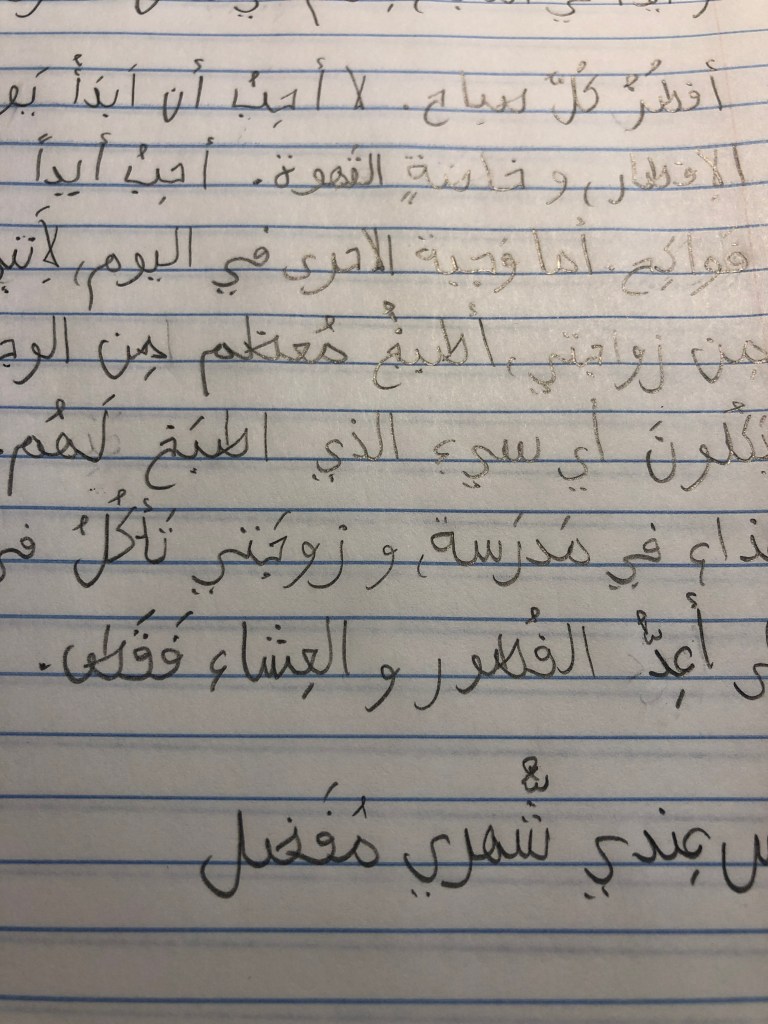 أفطرُ كُلّ صباح. لا أحِبُّ أن اَبَدَأ يَو
الإفطار، و خاصةٍ القَهوة. أحِبُّ أيداً
فَواكِح. أما وَجبة الاخرى في اليوم،
مِن زواجتي، أطبخُ مُعظم مِن الوج
أي سيء الذي اطبَخ لَهُم.
في مَدرَسة، و زوجَتي تَأكُلُ في
أعِدُّ الفُطور و العِشاء فَقَط.
عِندي شُّهري مُفَضل